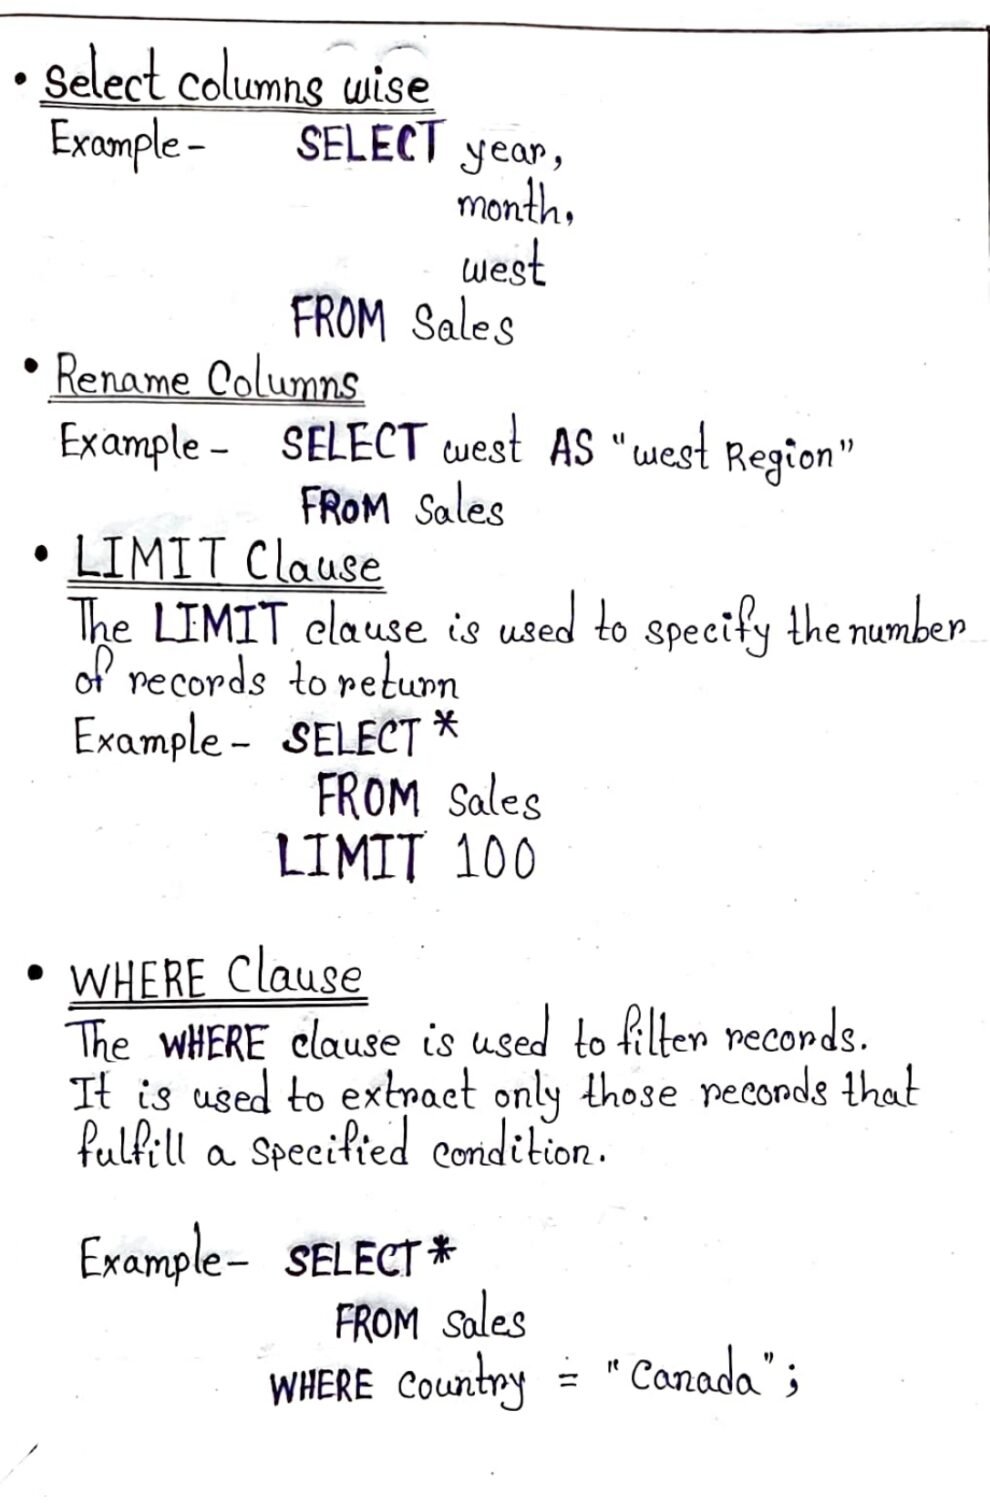 • Select columns wise
Example - SELECT year,
month,
west
FROM Sales
• Rename Columns
Example - SELECT west AS "west Region"
FROM Sales
• LIMIT Clause
The LIMIT clause is used to specify the number
of records to return
Example - SELECT *
FROM Sales
LIMIT 100
• WHERE Clause
The WHERE clause is used to filter records.
It is used to extract only those records that
fulfill a specified condition.
Example - SELECT *
FROM Sales
WHERE Country = "Canada";